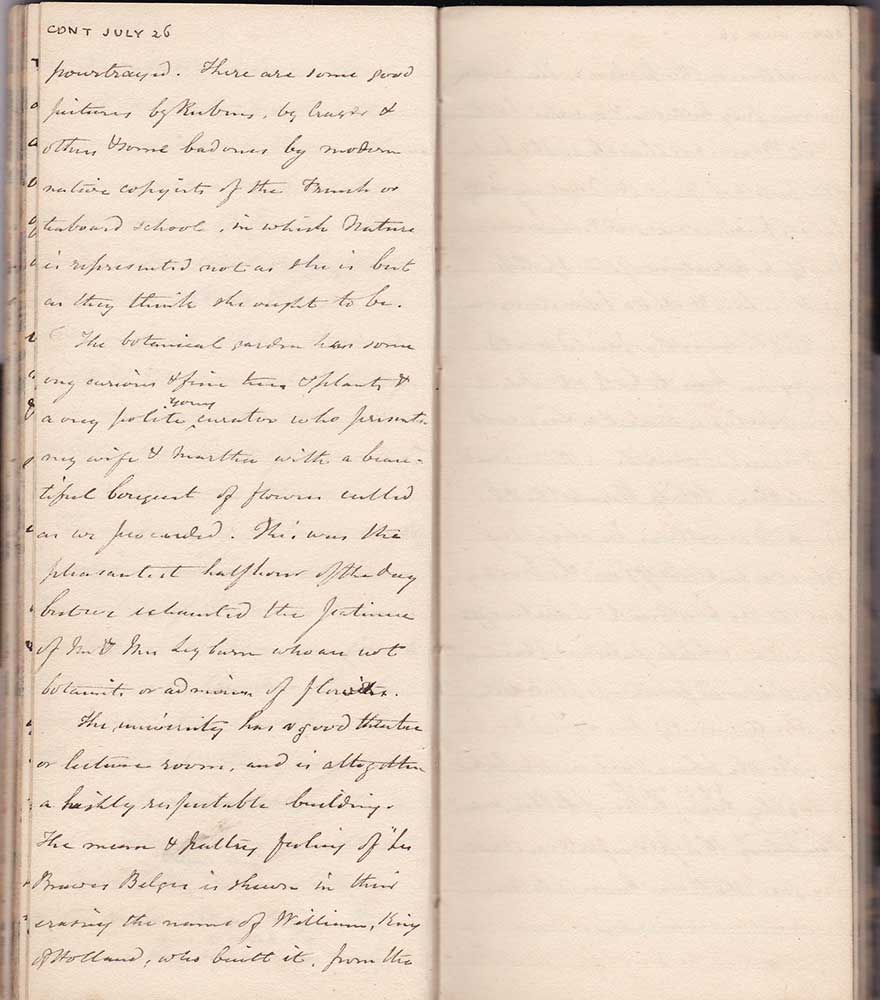 CONT JULY 26
pourtrayed. There are some good
pictures by Rubens, by Crayer &
others & some bad ones by modern
native copyists of the French or
teaboard school, in which Nature
is represented not as she is but
as they think she ought to be.
The botanical garden has some
very curious & fine trees & plants &
young
a very polite curator who presents
my wife & Martha with a beau-
tiful bouquet of flowers culled
as we proceeded. This was the
pleasantest half hour of the day
but we exhausted the patience
of Mr & Mrs Leyburn who are not
botanists or admirers of flowers.
The university has a good theatre
or lecture room, and is altogether
a highly respectable building.
The mean & paltry feeling of "les
Braves Belges is shewn in their
erasing the name of William, King
of Holland, who built it, from the